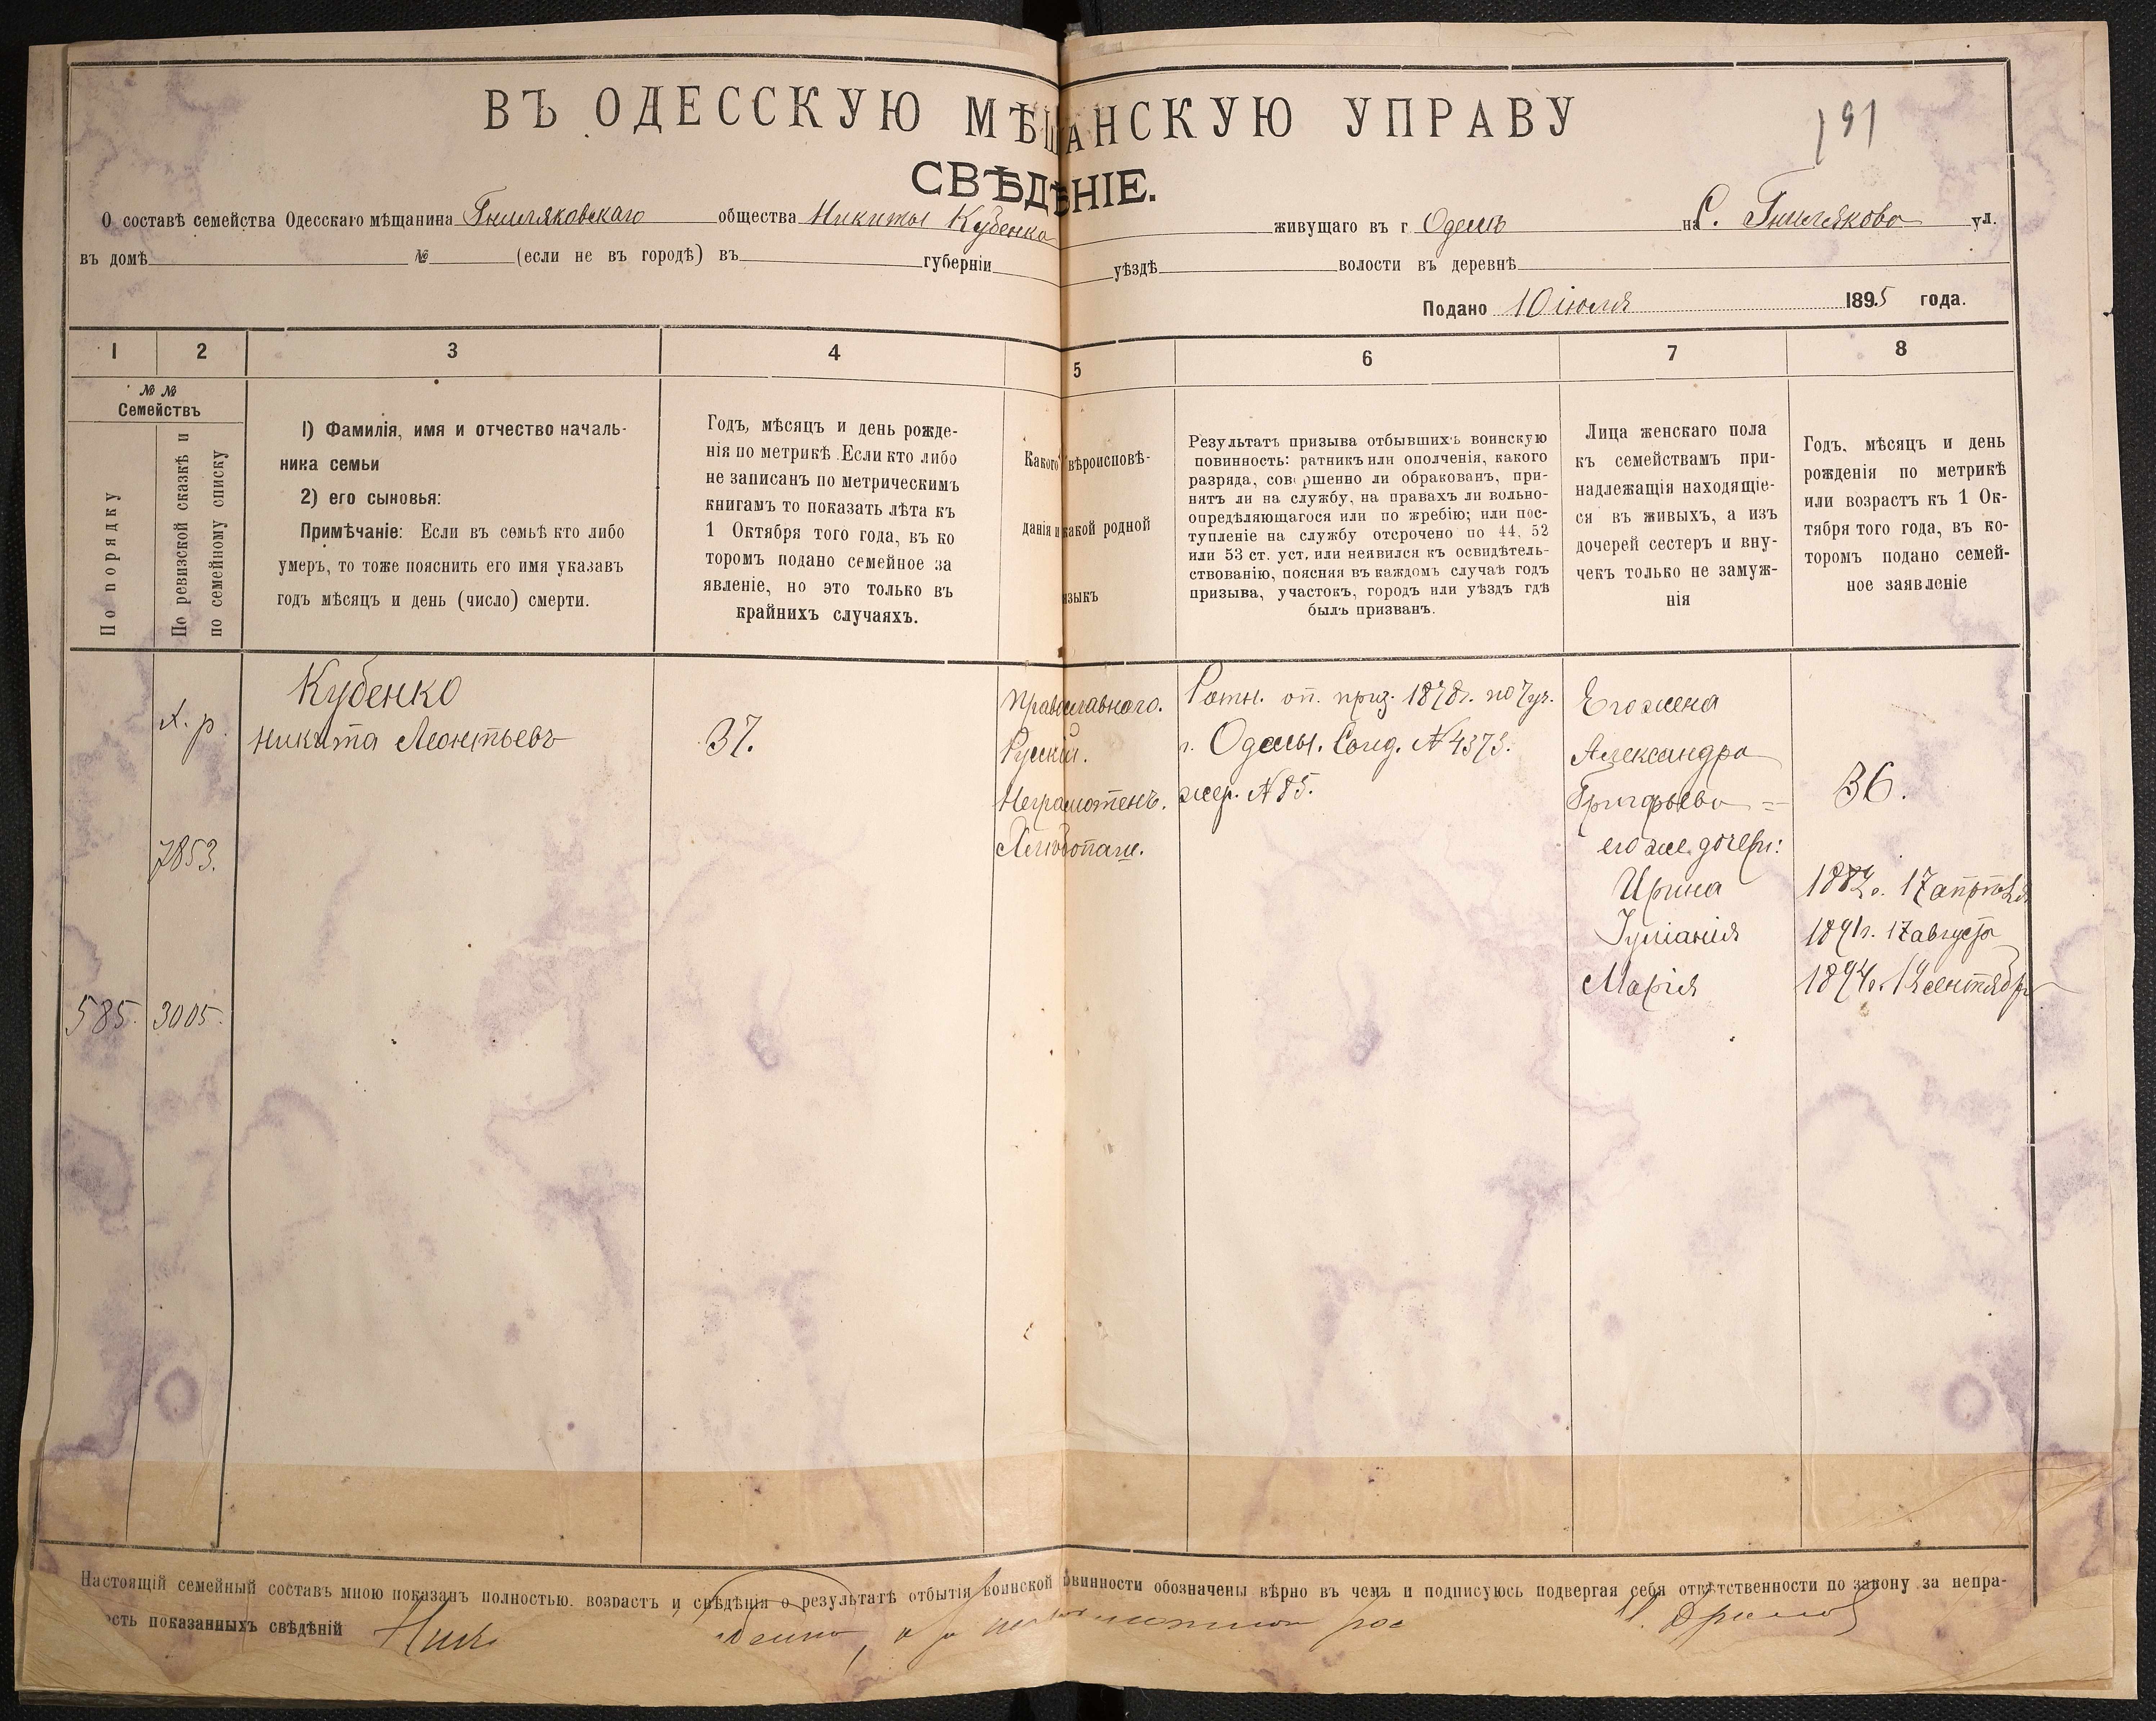 ВЪ ОДЕССКУЮ МѢЩАНСКУЮ УПРАВУ
191
СВѢДѢНІЕ.
О составѣ семейства Одесскаго мѣщанина Гниляковскаго общества Никиты Кубенко живущаго въ г. Одессѣ на С. Гниляково ул.
въ домѣ № (если не въ городѣ) въ губерніи уѣздѣ волости въ деревнѣ
Подано 10 іюля 1895 года.
1 2 3 4 5 6 7 8
№ №
Семействъ
По порядку
По ревизской сказкѣ и
по семейному списку
1) Фамилія, имя и отчество началь-
ника семьи
2) его сыновья:
Примѣчаніе: Если въ семьѣ кто либо
умеръ, то тоже пояснить его имя указавъ
годъ мѣсяцъ и день (число) смерти.
Годъ, мѣсяцъ и день рожде-
нія по метрикѣ. Если кто либо
не записанъ по метрическимъ
книгамъ то показать лѣта къ
1 Октября того года, въ ко
торомъ подано семейное за
явленіе, но это только въ
крайнихъ случаяхъ.
Какого вѣроисповѣ-
данія и какой родной
языкъ
Результатъ призыва отбывшихъ воинскую
повинность: ратникъ или ополченія, какого
разряда, совершенно ли обракованъ, при-
нятъ ли на службу, на правахъ ли вольно-
опредѣляющагося или по жребію; или пос-
тупленіе на службу отсрочено по 44, 52
или 53 ст. уст, или неявился къ освидѣтель-
ствованію, поясняя въ каждомъ случаѣ годъ
призыва, участокъ, городъ или уѣздъ гдѣ
былъ призванъ.
Лица женскаго пола
къ семействамъ при-
надлежащія находящіе-
ся въ живыхъ, а изъ
дочерей сестеръ и вну-
чекъ только не замуж-
нія
Годъ, мѣсяцъ и день
рожденія по метрикѣ
или возрастъ къ 1 Ок-
тября того года, въ ко-
торомъ подано семей-
ное заявленіе
Кубенко
Никита Леонтьевъ
37.
Православнаго.
Русскій.
Неграмотенъ.
Хлѣбопаш.
Ратн. оп. приз. 1878г. по 7 уч.
г. Одессы. Солд. №4373.
жер. №85.
Его жена
Александра
Григорьева =
36.
его же дочери:
Ирина
17 апрѣля
Іуліанія 1891г. 17 августа
Марія 1894г. сентября
7853.
585. 3005.
Настоящій семейный составъ мною показанъ полностью. возрастъ и свѣдѣнія о результатѣ отбытія воинской повинности обозначены вѣрно въ чемъ и подписуюсь подвергая себя отвѣтственности по закону за непра-
ость показанныхъ свѣдѣній